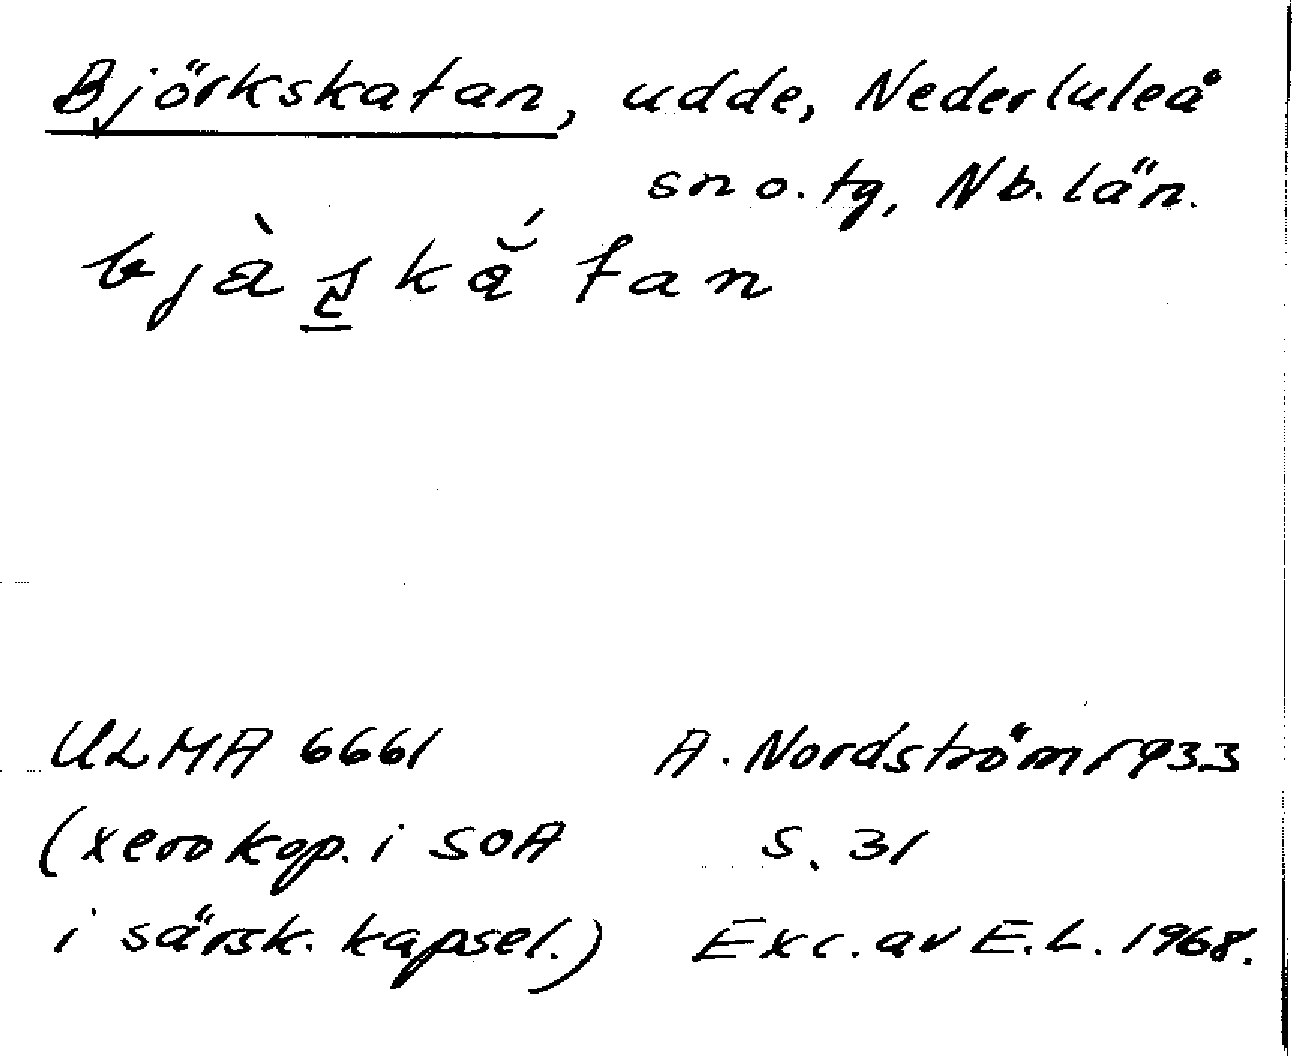 Björkskatan, udde, Nederluleå
sn o. tg, Nb. län.
ULMA 6661 A. Nordström 1933
(xerokop. i SOA S. 31
i särsk. kapsel.) Exc. av E.L. 1968.